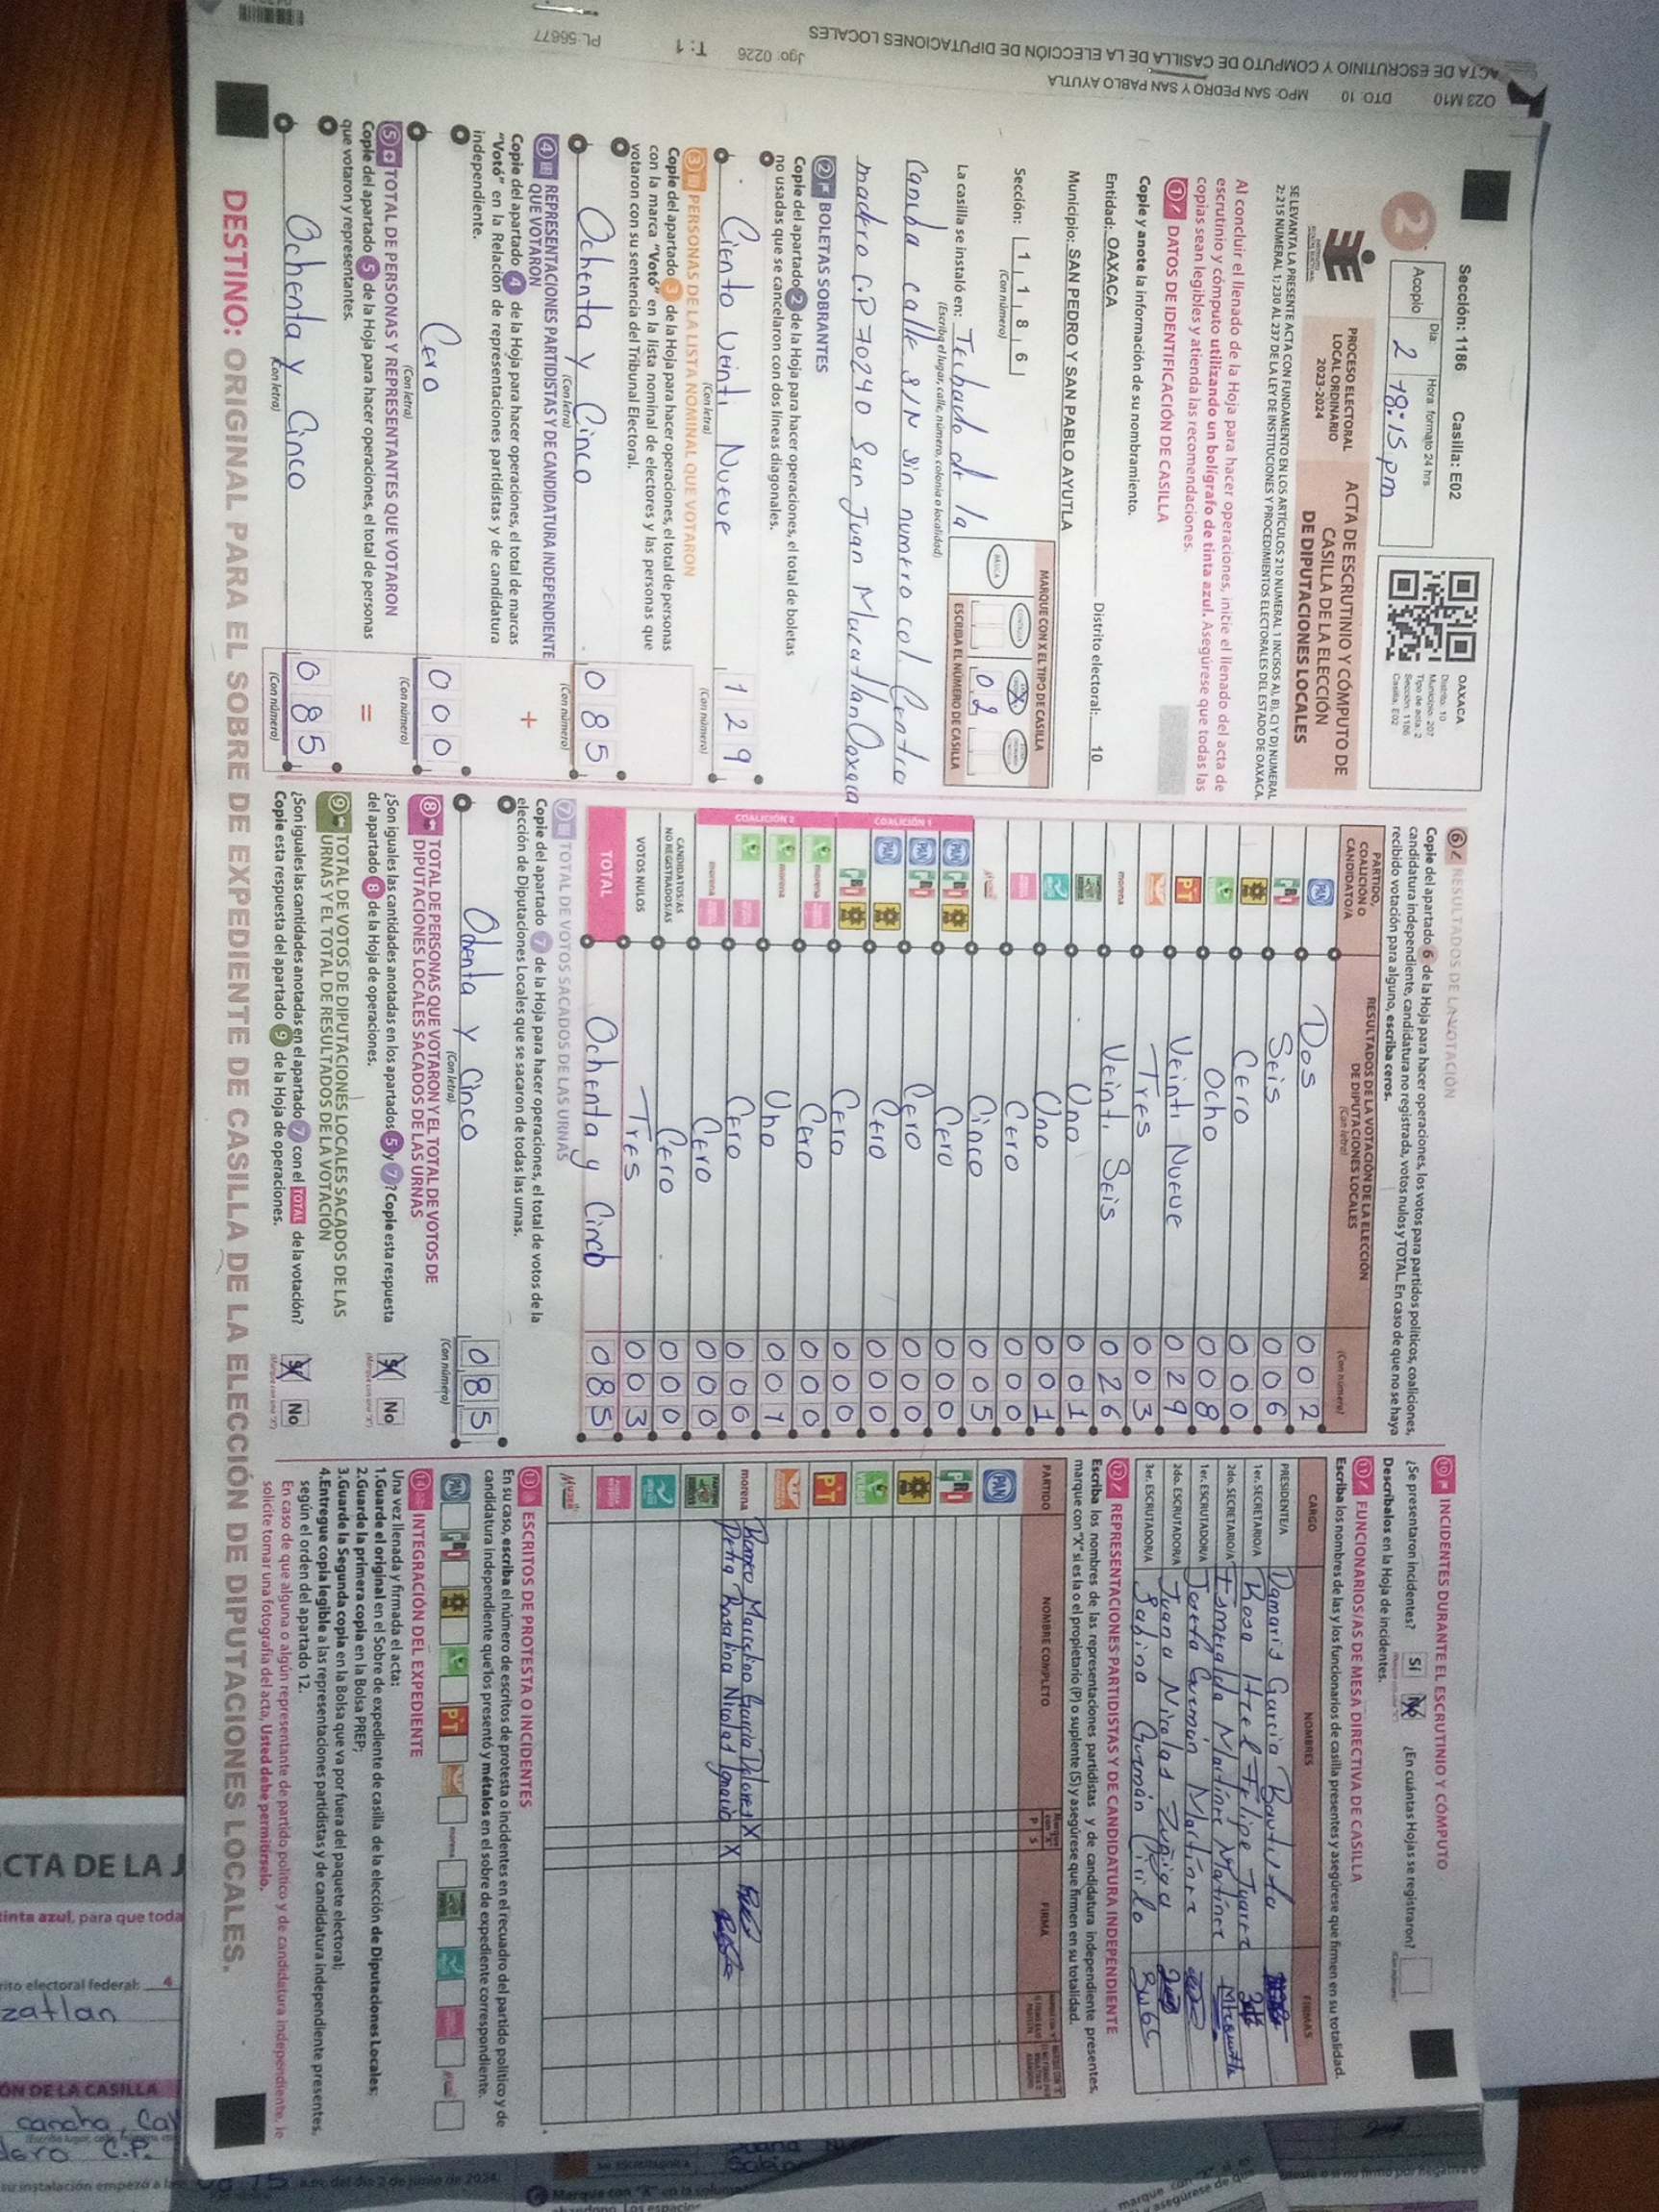 O23 M10 DTO: 10 MPO: SAN PEDRO Y SAN PABLO AYUTLA
ACTA DE ESCRUTINIO Y COMPUTO DE CASILLA DE LA ELECCIÓN DE DIPUTACIONES LOCALES
Jgo: 0226 T: 1 PL: 56677
Sección: 1186 Casilla: E02
2
Día: Hora: formato 24 hrs
Acopio 2 18:15 pm
OAXACA
Distrito: 10
Municipio: 207
Tipo de acta: 2
Sección: 1186
Casilla: E02
PROCESO ELECTORAL
LOCAL ORDINARIO
2023-2024
ACTA DE ESCRUTINIO Y CÓMPUTO DE
CASILLA DE LA ELECCIÓN
DE DIPUTACIONES LOCALES
SE LEVANTA LA PRESENTE ACTA CON FUNDAMENTO EN LOS ARTÍCULOS 210 NUMERAL 1 INCISOS A), B), C) Y D) NUMERAL
2; 215 NUMERAL 1; 230 AL 237 DE LA LEY DE INSTITUCIONES Y PROCEDIMIENTOS ELECTORALES DEL ESTADO DE OAXACA.
Al concluir el llenado de la Hoja para hacer operaciones, inicie el llenado del acta de
escrutinio y cómputo utilizando un bolígrafo de tinta azul. Asegúrese que todas las
copias sean legibles y atienda las recomendaciones.
1 DATOS DE IDENTIFICACIÓN DE CASILLA
Copie y anote la información de su nombramiento.
Entidad: OAXACA Distrito electoral: 10
Municipio: SAN PEDRO Y SAN PABLO AYUTLA
Sección: 1 1 8 6
(Con número)
MARQUE CON X EL TIPO DE CASILLA
BÁSICA CONTIGUA X
0 2
ESCRIBA EL NÚMERO DE CASILLA
La casilla se instaló en: Techado de la
(Escriba el lugar, calle, número, colonia o localidad)
cancha calle S/N sin numero col. Centro
madero C.P 70240 San Juan Mazatlan Oaxaca
2 BOLETAS SOBRANTES
Copie del apartado 2 de la Hoja para hacer operaciones, el total de boletas
no usadas que se cancelaron con dos líneas diagonales.
Ciento Veinti Nueve 1 2 9
(Con letra) (Con número)
3 PERSONAS DE LA LISTA NOMINAL QUE VOTARON
Copie del apartado 3 de la Hoja para hacer operaciones, el total de personas
con la marca "Votó" en la lista nominal de electores y las personas que
votaron con su sentencia del Tribunal Electoral.
Ochenta y Cinco 0 8 5
(Con letra) (Con número)
4 REPRESENTACIONES PARTIDISTAS Y DE CANDIDATURA INDEPENDIENTE
QUE VOTARON
Copie del apartado 4 de la Hoja para hacer operaciones, el total de marcas
"Votó" en la Relación de representaciones partidistas y de candidatura
independiente.
+
Cero 0 0 0
(Con letra) (Con número)
5 TOTAL DE PERSONAS Y REPRESENTANTES QUE VOTARON
Copie del apartado 5 de la Hoja para hacer operaciones, el total de personas
que votaron y representantes.
=
Ochenta y Cinco 0 8 5
(Con letra) (Con número)
6 RESULTADOS DE LA VOTACIÓN
Copie del apartado 6 de la Hoja para hacer operaciones, los votos para partidos políticos, coaliciones,
candidatura independiente, candidatura no registrada, votos nulos y TOTAL. En caso de que no se haya
recibido votación para alguno, escriba ceros.
PARTIDO,
COALICIÓN O
CANDIDATO/A
RESULTADOS DE LA VOTACIÓN DE LA ELECCIÓN
DE DIPUTACIONES LOCALES
(Con letra)
(Con número)
PAN Dos 0 0 2
PRI Seis 0 0 6
Cero 0 0 0
Ocho 0 0 8
PT Veinti Nueve 0 2 9
Tres 0 0 3
morena Veinti Seis 0 2 6
Uno 0 0 1
Uno 0 0 1
Cero 0 0 0
Cinco 0 0 5
COALICIÓN 1
PAN PRI Cero 0 0 0
PAN PRI Cero 0 0 0
PAN Cero 0 0 0
PRI Cero 0 0 0
COALICIÓN 2
morena Cero 0 0 0
morena Uno 0 0 1
Cero 0 0 0
morena Cero 0 0 0
CANDIDATOS/AS
NO REGISTRADOS/AS Cero 0 0 0
VOTOS NULOS Tres 0 0 3
TOTAL Ochenta y Cinco 0 8 5
7 TOTAL DE VOTOS SACADOS DE LAS URNAS
Copie del apartado 7 de la Hoja para hacer operaciones, el total de votos de la
elección de Diputaciones Locales que se sacaron de todas las urnas.
Ochenta y Cinco 0 8 5
(Con letra) (Con número)
8 TOTAL DE PERSONAS QUE VOTARON Y EL TOTAL DE VOTOS DE
DIPUTACIONES LOCALES SACADOS DE LAS URNAS
¿Son iguales las cantidades anotadas en los apartados 5 y 7? Copie esta respuesta
del apartado 8 de la Hoja de operaciones.
Sí No
9 TOTAL DE VOTOS DE DIPUTACIONES LOCALES SACADOS DE LAS
URNAS Y EL TOTAL DE RESULTADOS DE LA VOTACIÓN
¿Son iguales las cantidades anotadas en el apartado 7 con el TOTAL de la votación?
Copie esta respuesta del apartado 9 de la Hoja de operaciones.
Sí No
10 INCIDENTES DURANTE EL ESCRUTINIO Y CÓMPUTO
¿Se presentaron incidentes? Sí No ¿En cuántas Hojas se registraron?
Descríbalos en la Hoja de incidentes.
11 FUNCIONARIOS/AS DE MESA DIRECTIVA DE CASILLA
Escriba los nombres de las y los funcionarios de casilla presentes y asegúrese que firmen en su totalidad.
CARGO NOMBRES FIRMAS
PRESIDENTE/A Damaris Garcia Bautista
1er. SECRETARIO/A Rosa Itzel Felipe Juarez
2do. SECRETARIO/A Esmeralda Martínez Martínez
1er. ESCRUTADOR/A Josefa Guzmán Martínez
2do. ESCRUTADOR/A Juana Nicolas Zuñiga
3er. ESCRUTADOR/A Sabina Guzmán Cirilo
12 REPRESENTACIONES PARTIDISTAS Y DE CANDIDATURA INDEPENDIENTE
Escriba los nombres de las representaciones partidistas y de candidatura independiente presentes,
marque con "X" si es la o el propietario (P) o suplente (S) y asegúrese que firmen en su totalidad.
PARTIDO NOMBRE COMPLETO P S FIRMA
PAN
PRI
PT
morena Marcelino Garcia Dolores X
Delia Rosalina Nicolas Ignacio X
13 ESCRITOS DE PROTESTA O INCIDENTES
En su caso, escriba el número de escritos de protesta o incidentes en el recuadro del partido político y de
candidatura independiente que los presentó y métalos en el sobre de expediente correspondiente.
PAN PRI PT morena
14 INTEGRACIÓN DEL EXPEDIENTE
Una vez llenada y firmada el acta:
1.Guarde el original en el Sobre de expediente de casilla de la elección de Diputaciones Locales;
2.Guarde la primera copia en la Bolsa PREP;
3.Guarde la Segunda copia en la Bolsa que va por fuera del paquete electoral;
4.Entregue copia legible a las representaciones partidistas y de candidatura independiente presentes,
según el orden del apartado 12.
En caso de que alguna o algún representante de partido político y de candidatura independiente, le
solicite tomar una fotografía del acta, Usted debe permitírselo.
DESTINO: ORIGINAL PARA EL SOBRE DE EXPEDIENTE DE CASILLA DE LA ELECCIÓN DE DIPUTACIONES LOCALES.
CTA DE LA J
tinta azul, para que toda
rito electoral federal: 4
zatlan
ÓN DE LA CASILLA
cancha, Cal
dero C.P.
su instalación empezó a la
del día 2 de junio de 2024.